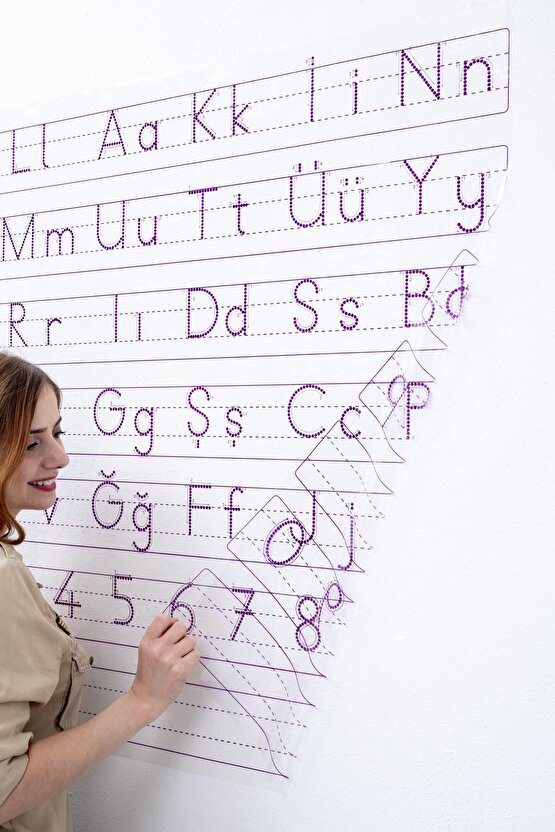 Ll Aa Kk İi Nn
Mm Uu Tt Üü Yy
Rr Iı Dd Ss Bb
Gg Şş Cc Pp
v Ğğ Ff Jj
4 5 6 7 8